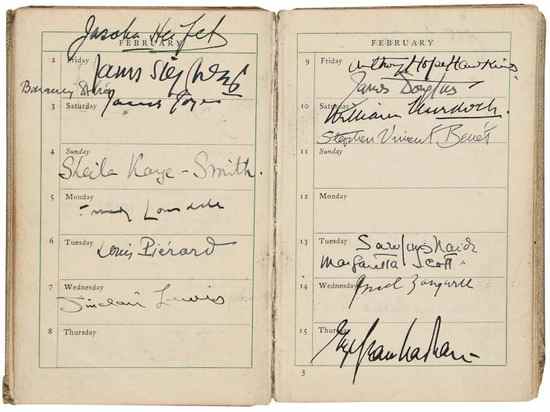 Jascha Heifetz
FEBRUARY
2 Friday
James Stephens
Barney
3 Saturday
James Joyce
4 Sunday
Sheila Kaye-Smith.
5 Monday
Lonsdale
6 Tuesday
Louis Piérard
7 Wednesday
Sinclair Lewis
8 Thursday
FEBRUARY
9 Friday
Anthony Hope Hawkins
James Douglas
10 Saturday
William Murdoch.
Stephen Vincent Benét
11 Sunday
12 Monday
13 Tuesday
Sarojini Naidu
Margaretta Scott.
14 Wednesday
Israel Zangwill
15 Thursday
3